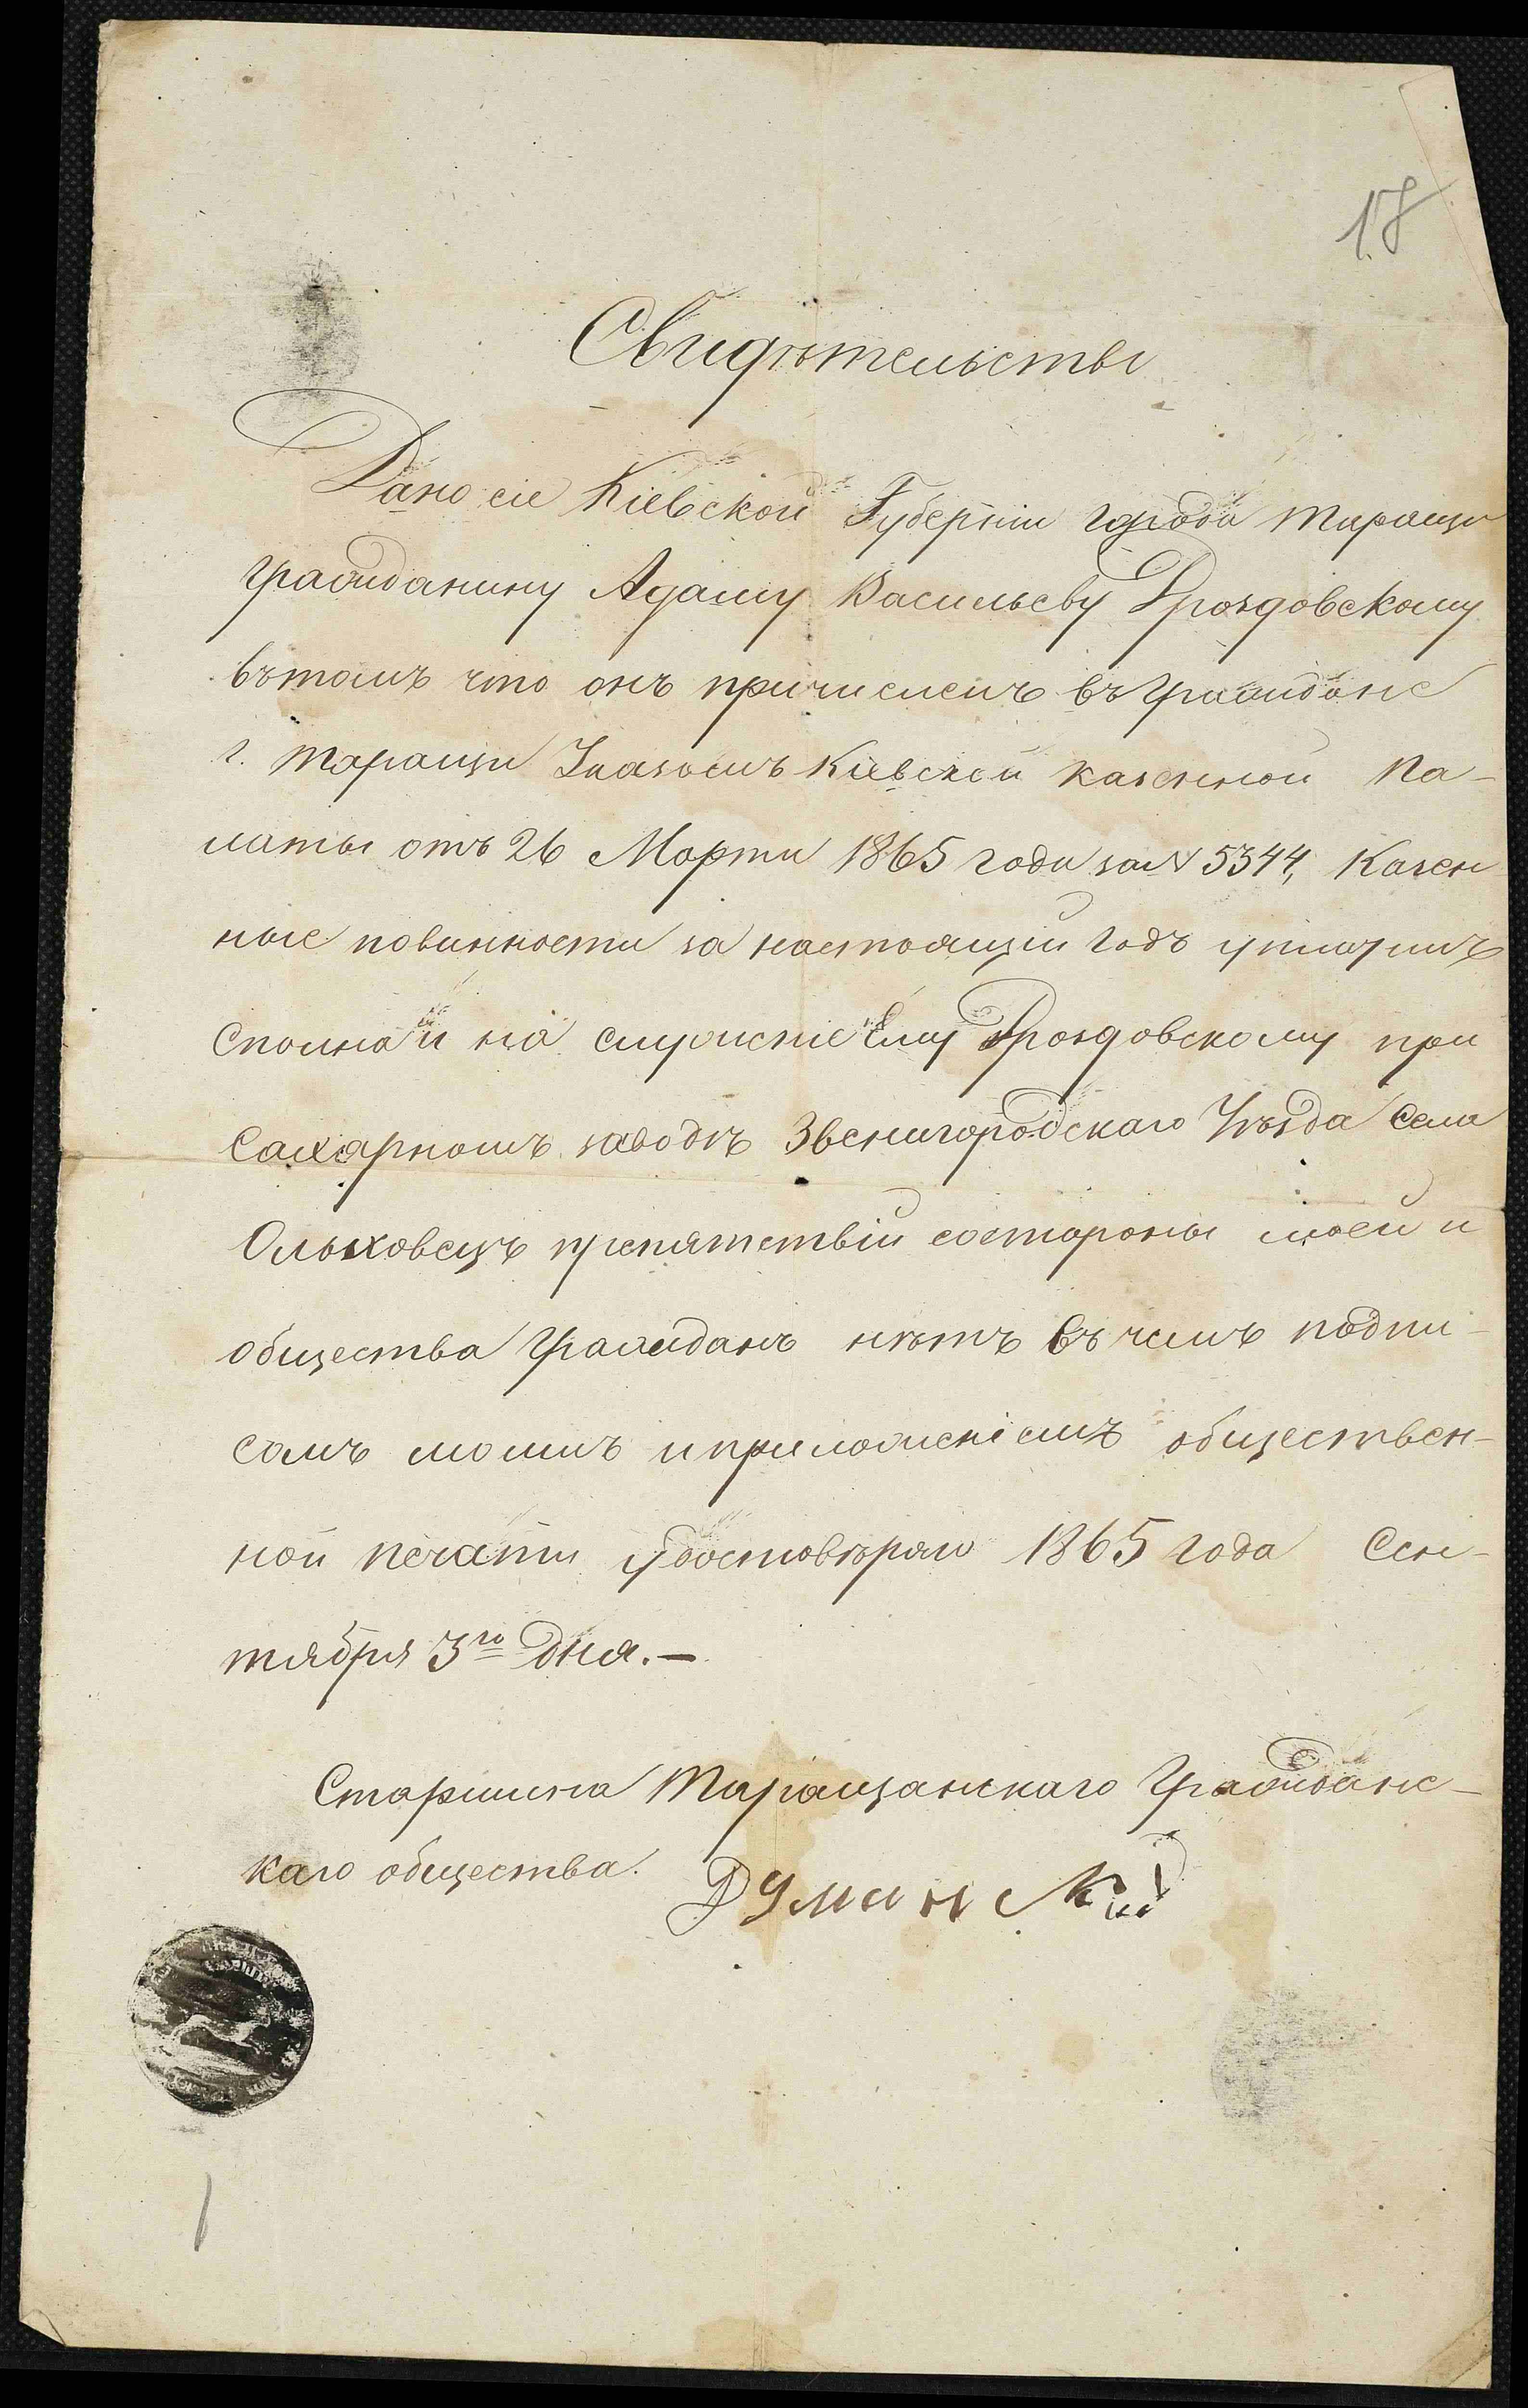 18
Свидѣтельство
Дано сіе Кіевской Губерніи города Таращи
гражданину Адаму Васильеву Дроздовскому
вътомъ что онъ причисленъ въ Граждане
г. Таращи Указомъ Кіевской казенной Па-
латы отъ 26 Марта 1865 года за № 5344, Казен
ные повинности за настоящій годъ уплатилъ
сполна и на служеніе Ему Дроздовскому при
Сахарномъ заводѣ Звенигородскаго Уѣзда Села
Ольховецъ препятствій состороны моей и
общества Гражданъ нѣтъ въ чемъ подпи-
сомъ моимъ и приложеніемъ обществен-
ной печати удостовѣряю 1865 года Сен-
тября 3го дня.—
Старшина Таращанскаго Гражданс-
каго общества.